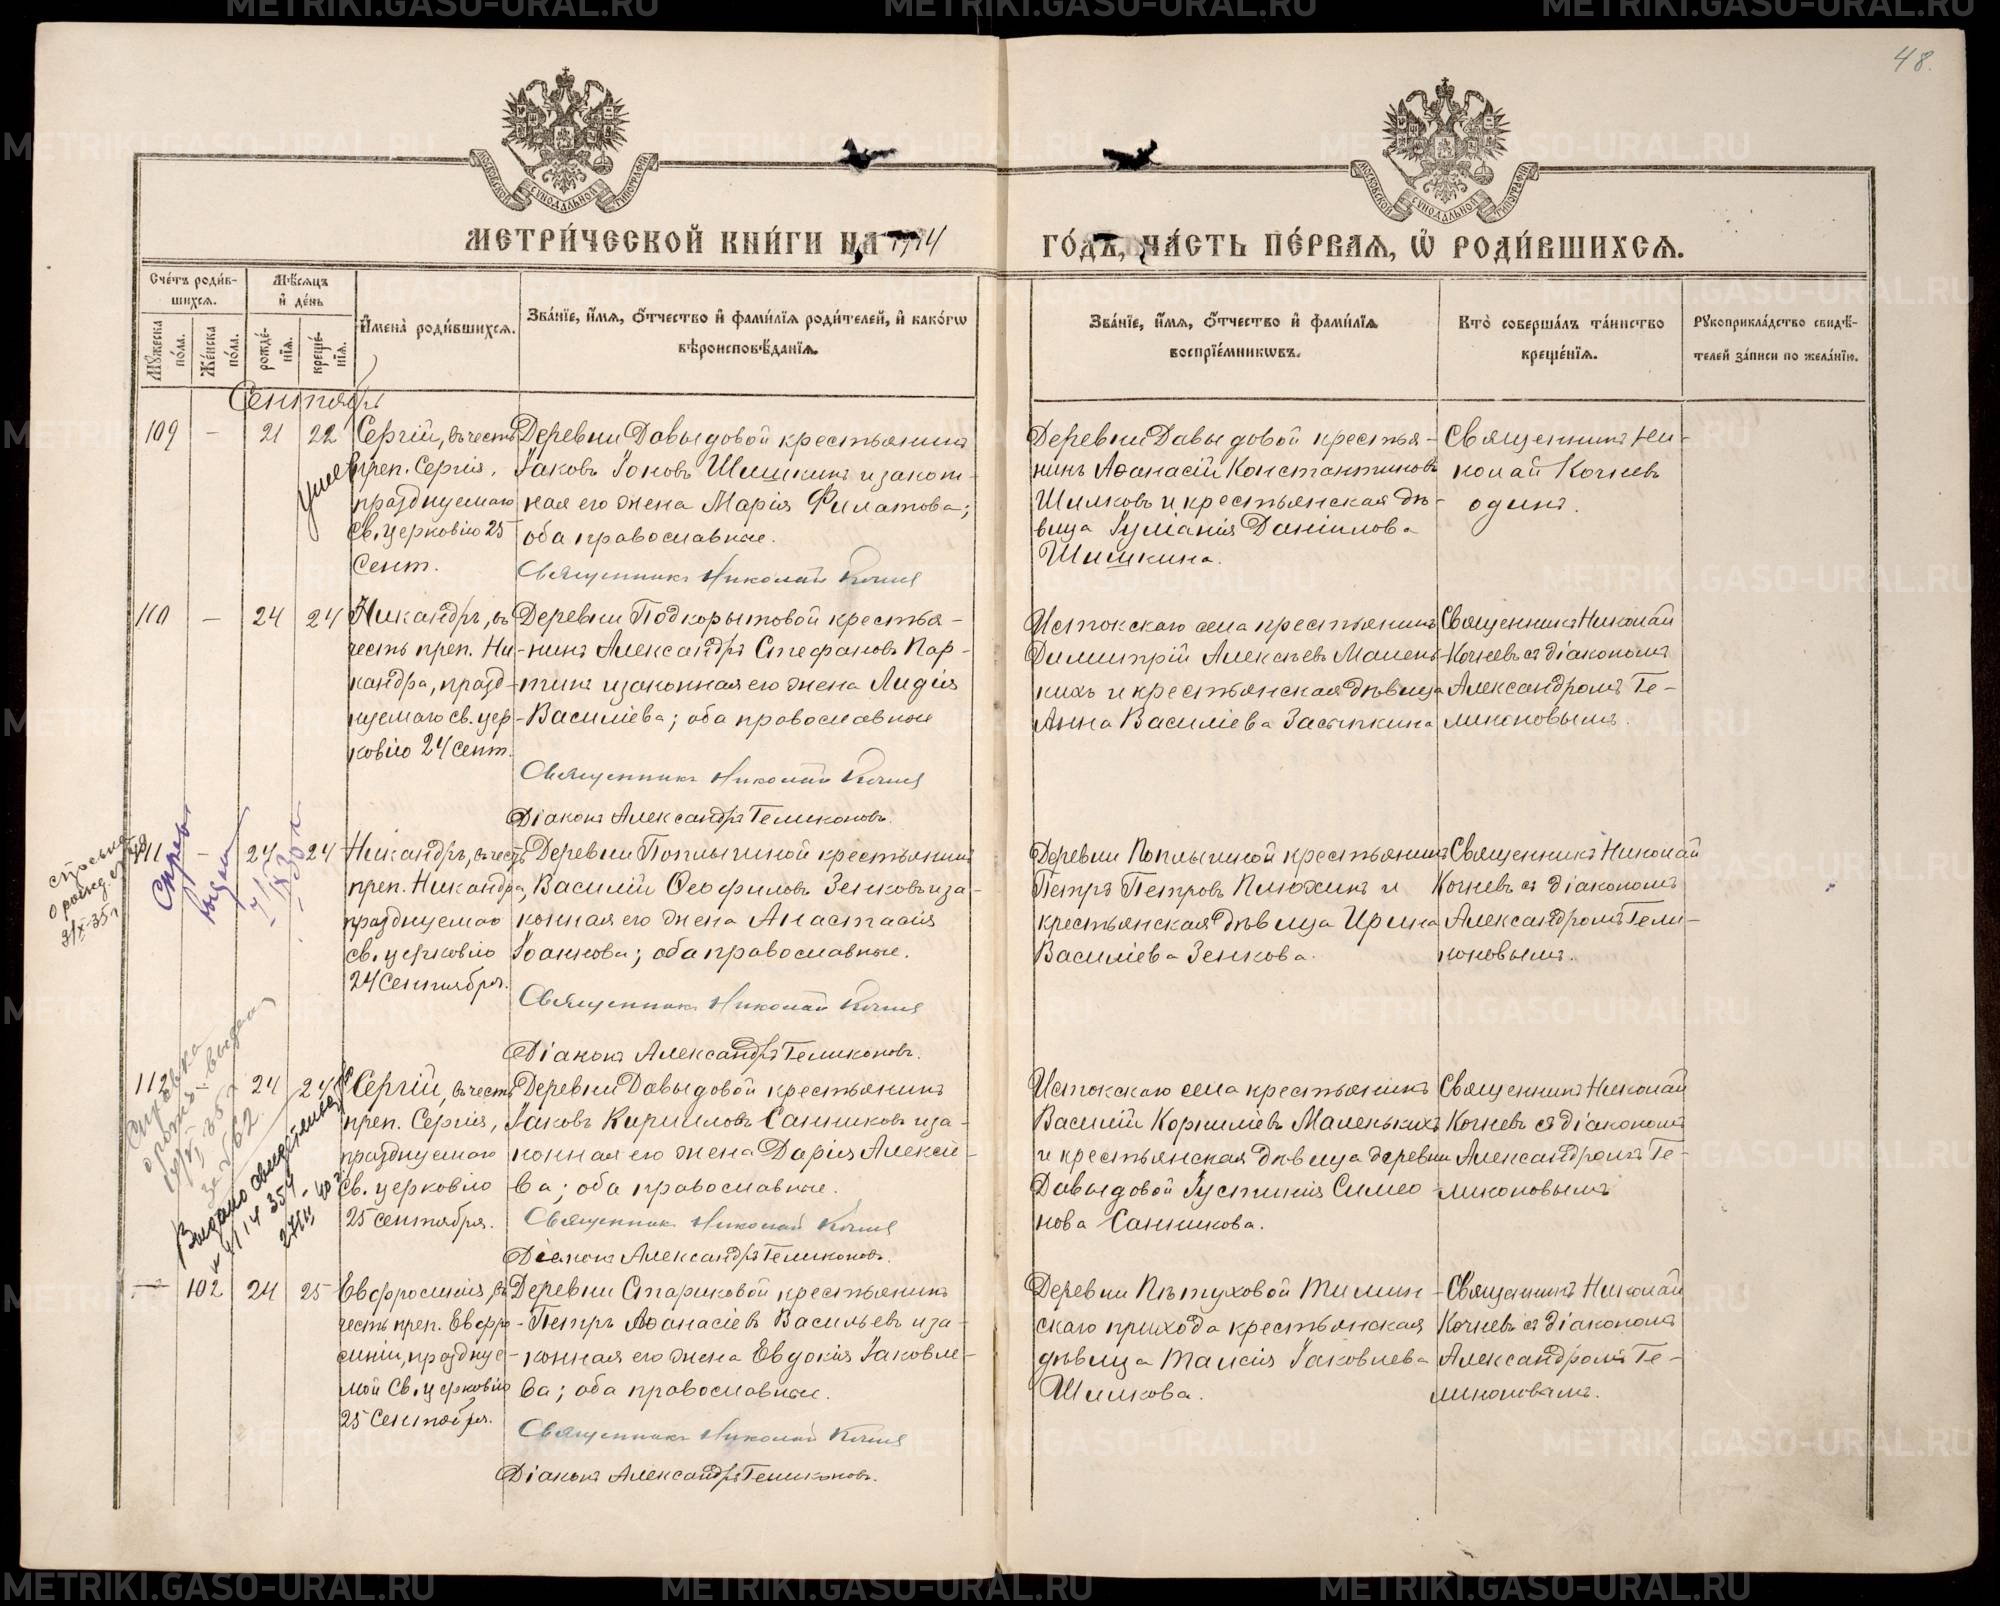 48.
МОСКОВСКОЙ СѴНОДАЛЬНОЙ ТИПОГРАФІИ
МОСКОВСКОЙ СѴНОДАЛЬНОЙ ТИПОГРАФІИ
МЕТРИ́ЧЕСКОЙ КНИ́ГИ НА 1914
ГО́ДЪ, ЧА́СТЬ ПЕ́РВАЯ, Ѡ҆ РОДИ́ВШИХСЯ.
Сче́тъ роди́в-
шихся.
Мꙋжеска по́ла.
Же́нска по́ла.
Мѣ́сяцъ
и҆ де́нь
рожде́-
нїя.
креще́-
нїя.
И҆мена̀ роди́вшихся.
Зва́нїе, и҆́мя, ѻ҆́тчество и҆ фами́лїя роди́телей, и҆ како́гѡ
вѣроисповѣ́данїя.
Зва́нїе, и҆́мя, ѻ҆́тчество и҆ фами́лїя
воспрїе́мникѡвъ.
Кто̀ соверша́лъ та́инство
креще́нїя.
Рꙋкоприкла́дство свидѣ́-
телей за́писи по жела́нїю.
Сентябрь
109 — 21 22
Сергій, въ честь
преп. Сергія,
празднуемаго
Св. церковію 25
Сент.
Деревни Давыдовой крестьянинъ
Іаковъ Іоновъ Шишкинъ и закон-
ная его жена Марія Филатова;
оба православные.
Священникъ Николай Кочнев
Деревни Давыдовой крестья-
нинъ Аѳанасій Константиновъ
Шилковъ и крестьянская дѣ-
вица Іуліанія Даніилова
Шишкина.
Священникъ Ни-
колай Кочневъ
одинъ.
110 — 24 24
Никандръ, въ
честь преп. Ни-
кандра, празд-
нуемаго св. цер-
ковію 24 сент.
Деревни Подкорытовой крестья-
нинъ Александръ Стефановъ Пар-
тинъ и законная его жена Лидія
Василіева; оба православные
Священникъ Николай Кочнев
Діаконъ Александръ Геликоновъ.
Истокскаго села крестьянинъ
Димитрій Алексѣевъ Малень-
кихъ и крестьянская дѣвица
Анна Василіева Засыпкина
Священникъ Николай
Кочневъ съ діакономъ
Александромъ Ге-
ликоновымъ.
111 — 24 24
Никандръ, въ честь
преп. Никандра,
празднуемаго
св. церковію
24 Сентября.
Деревни Поплыгиной крестьянинъ
Василій Ѳеофиловъ Зенковъ и за-
конная его жена Анастасія
Іоаннова; оба православные.
Священникъ Николай Кочнев
Діаконъ Александръ Геликоновъ.
Деревни Поплыгиной крестьянинъ
Петръ Петровъ Плюхинъ и
крестьянская дѣвица Ирина
Василіева Зенкова.
Священникъ Николай
Кочневъ съ діакономъ
Александромъ Гели-
коновымъ.
112 24 24
Сергій, въ честь
преп. Сергія,
празднуемаго
Св. церковію
25 сентября.
Деревни Давыдовой крестьянинъ
Іаковъ Кирилловъ Санниковъ и за-
конная его жена Дарія Алексіе-
ва; оба православные.
Священникъ Николай Кочнев
Діаконъ Александръ Геликоновъ.
Истокскаго села крестьянинъ
Василій Корниліевъ Маленькихъ
и крестьянская дѣвица деревни
Давыдовой Іустинія Симео-
нова Санникова.
Священникъ Николай
Кочневъ съ діакономъ
Александромъ Ге-
ликоновымъ
— 102 24 25
Евфросинія, въ
честь преп. Евфро-
синіи, празднуе-
мой Св. церковію
25 Сентября.
Деревни Стариковой крестьянинъ
Петръ Аѳанасіевъ Васильевъ и за-
конная его жена Евдокія Іаковле-
ва; оба православные.
Священникъ Николай Кочнев
Діаконъ Александръ Геликоновъ.
Деревни Пѣтуховой Тимин-
скаго прихода крестьянская
дѣвица Таисія Іаковлева
Шилкова.
Священникъ Николай
Кочневъ съ діакономъ
Александромъ Ге-
ликоновымъ.
умер
Справка
выдана
Справка
выдана
Выдано свидетельство
METRIKI.GASO-URAL.RU